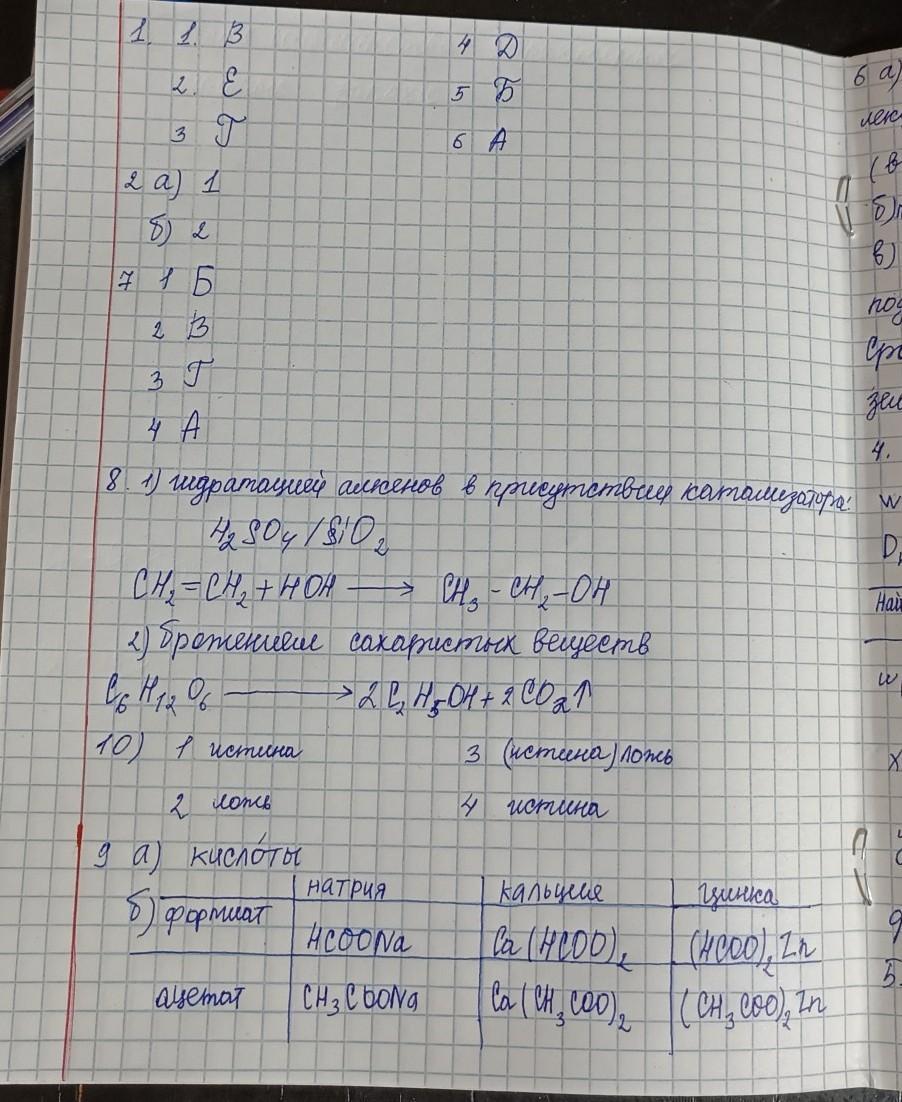 1. 1. В 4 Д
2. Е 5 Б
3 Г 6 А
2 а) 1
б) 2
7 1 Б
2 В
3 Г
4 А
8. 1) гидратацией алкенов в присутствии катализатора:
H₂SO₄/SiO₂
CH₂=CH₂+HOH ⟶ CH₃-CH₂-OH
2) брожением сахаристых веществ
C₆H₁₂O₆ ⟶ 2C₂H₅OH+2CO₂↑
10) 1 истина 3 (истина) ложь
2 ложь 4 истина
9 а) кисло́ты
натрия кальция цинка
б) формиат HCOONa Ca(HCOO)₂ (HCOO)₂Zn
ацетат CH₃COONa Ca(CH₃COO)₂ (CH₃COO)₂Zn
6 а)
лек
(в
б)
в)
под
ср
зел
4.
w
D
Най
w
x
9
5.